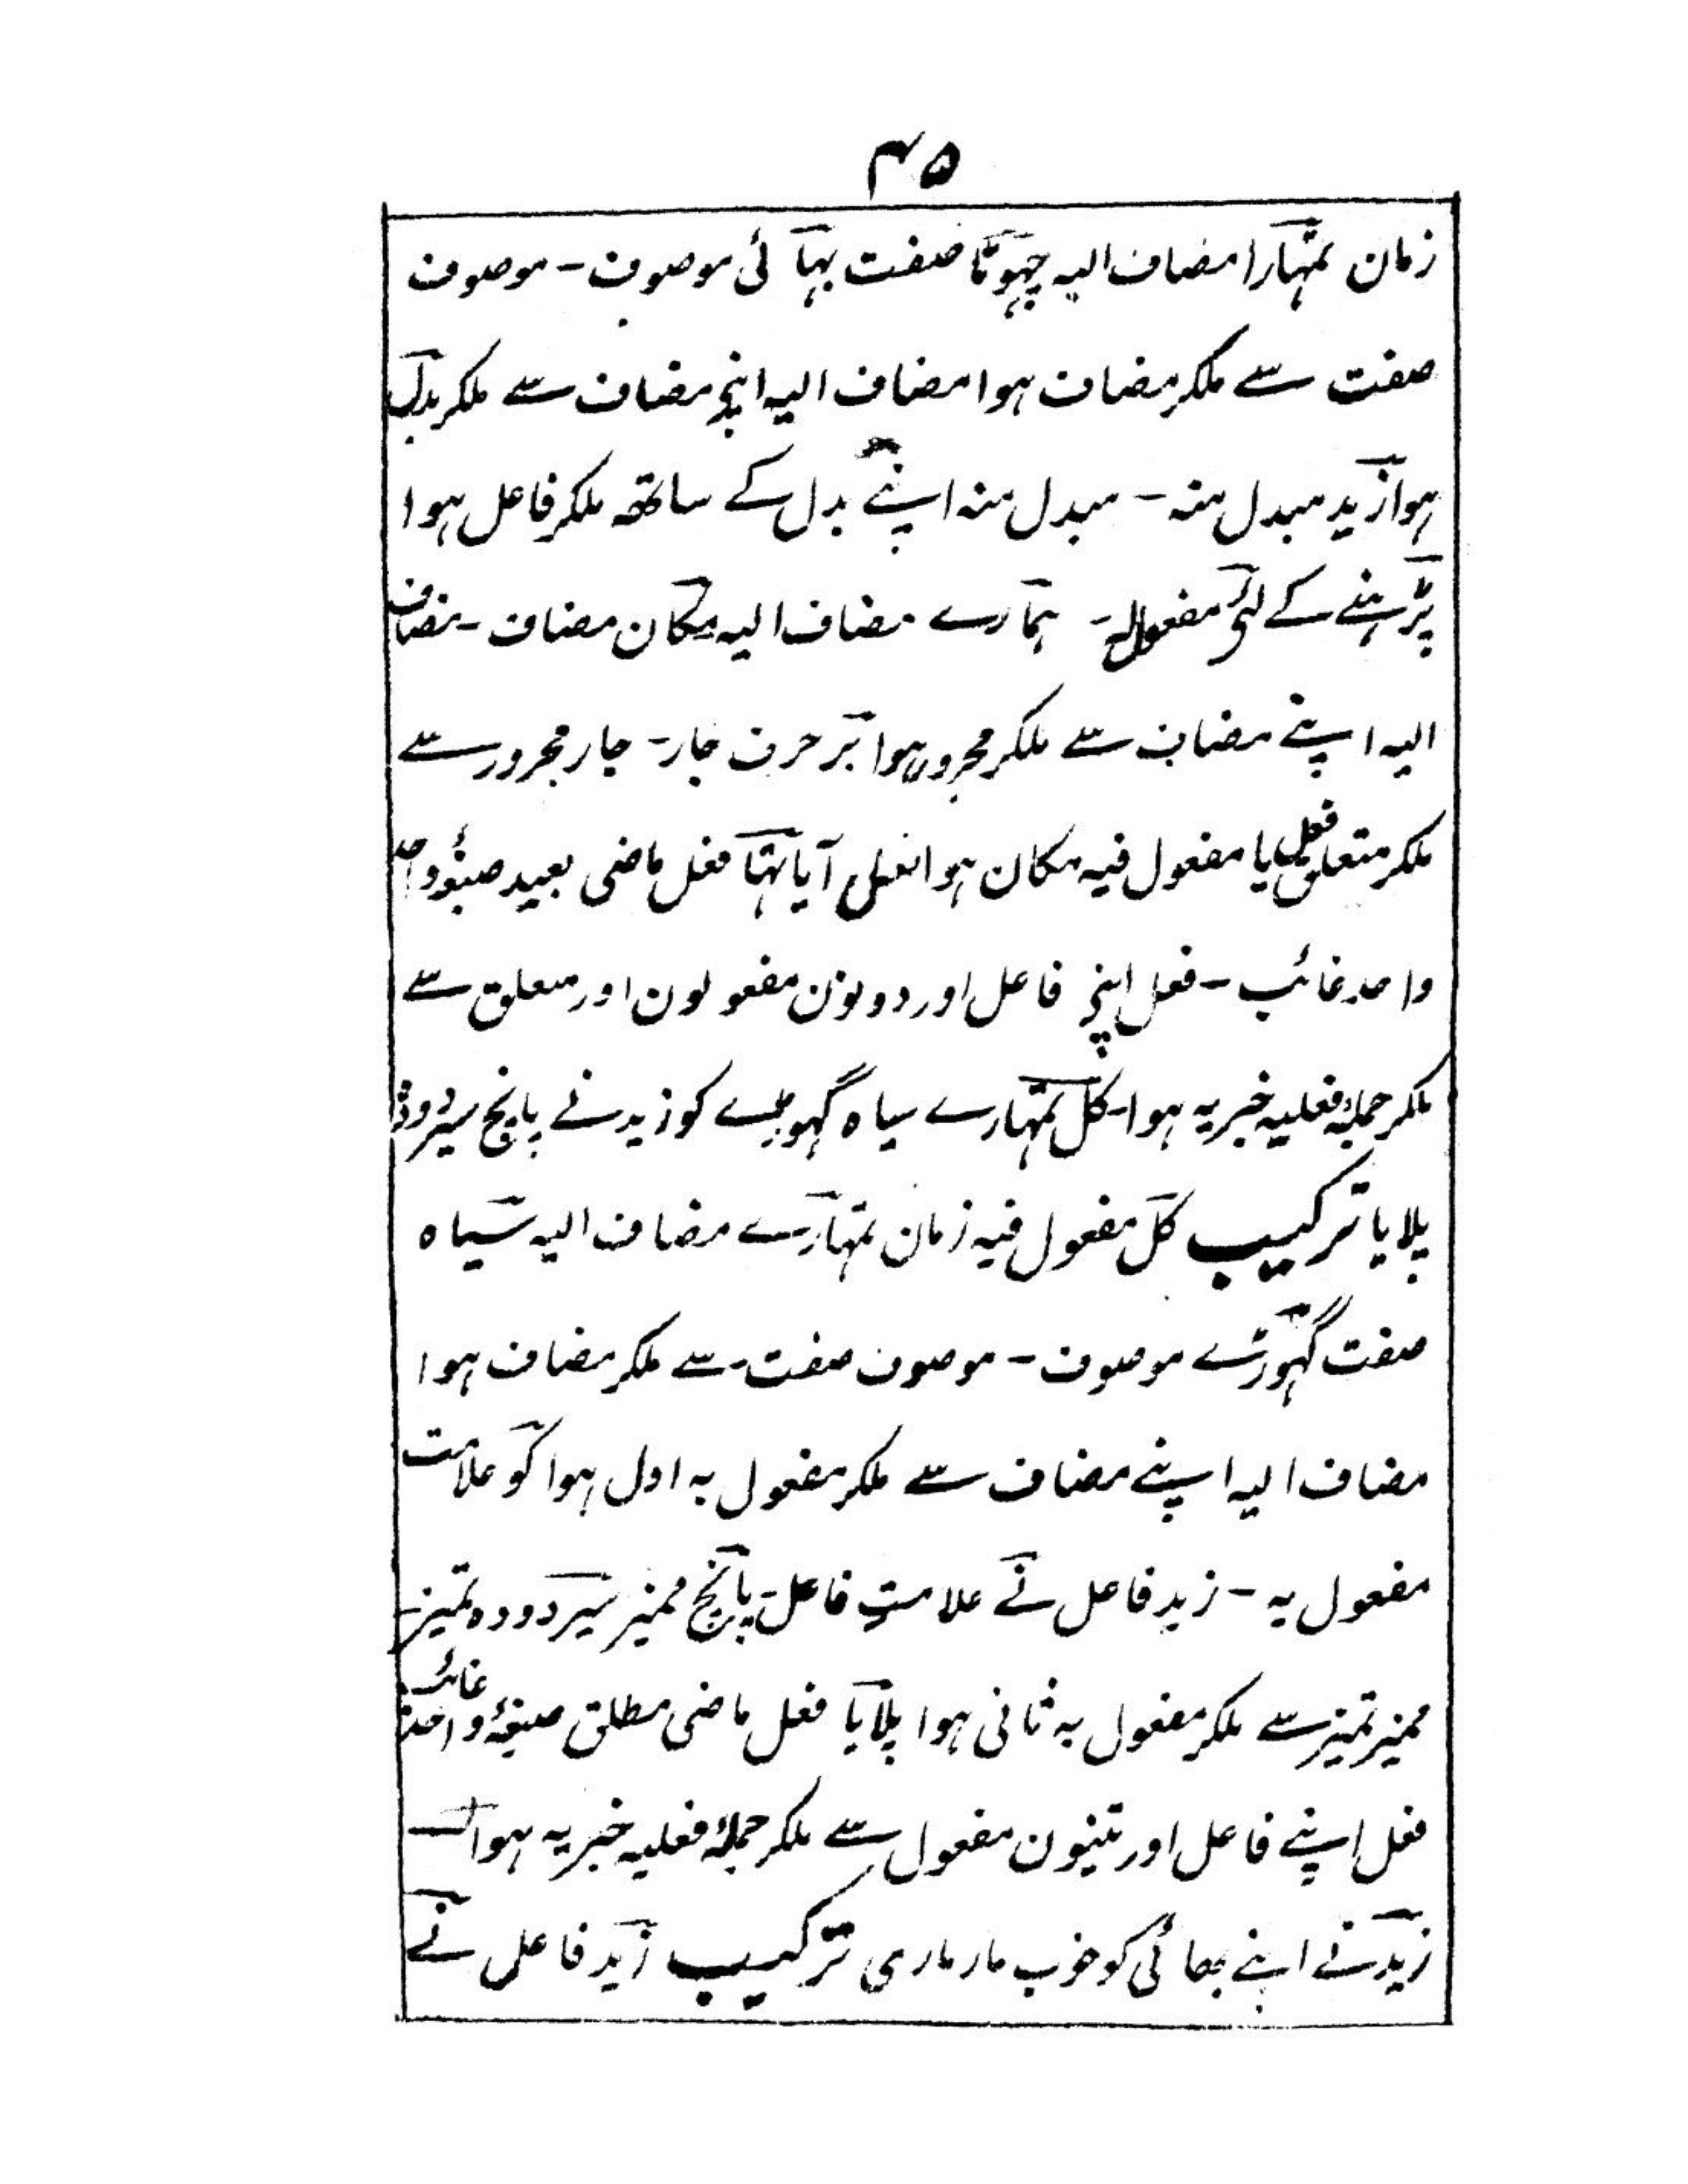 ۴۵
زمان تمہارا مضاف الیہ چہوٹا صفت بہائی موصوف - موصوف
صفت سے ملکر مضاف ہوا مضاف الیہ اپنے مضاف سے ملکر بدل
ہوا زید مبدل منہ - مبدل منہ اپنے بدل کے ساتھہ ملکر فاعل ہوا
پڑہنے کے لئے مفعول لہ - ہمارے مضاف الیہ مکان مضاف - مضاف
الیہ اپنے مضاف سے ملکر مجرور ہوا پر حرف جار - جار مجرور سے
ملکر متعلق فعل یا مفعول فیہ مکان ہوا آیا تہا فعل ماضی بعید صیغۂ واحد
واحد غائب - فعل اپنے فاعل اور دونون مفعولون اور متعلق سے
ملکر جملۂ فعلیہ خبریہ ہوا - کل تمہارے سیاہ گہوڑے کو زید نے پانچ سیر دودہ
پلایا ترکیب کل مفعول فیہ زمان تمہارے مضاف الیہ سیاہ
صفت گہوڑے موصوف - موصوف صفت سے ملکر مضاف ہوا
مضاف الیہ اپنے مضاف سے ملکر مفعول بہ اول ہوا کو علامت
مفعول بہ - زید فاعل نے علامتِ فاعل - پانچ ممیز سیر دودہ تمیز -
ممیز تمیز سے ملکر مفعول بہ ثانی ہوا پلایا فعل ماضی مطلق صیغۂ واحد غائب
فعل اپنے فاعل اور تینون مفعول سے ملکر جملۂ فعلیہ خبریہ ہوا -
زید نے اپنے بھائی کو خوب مار ماری ترکیب زید فاعل نے